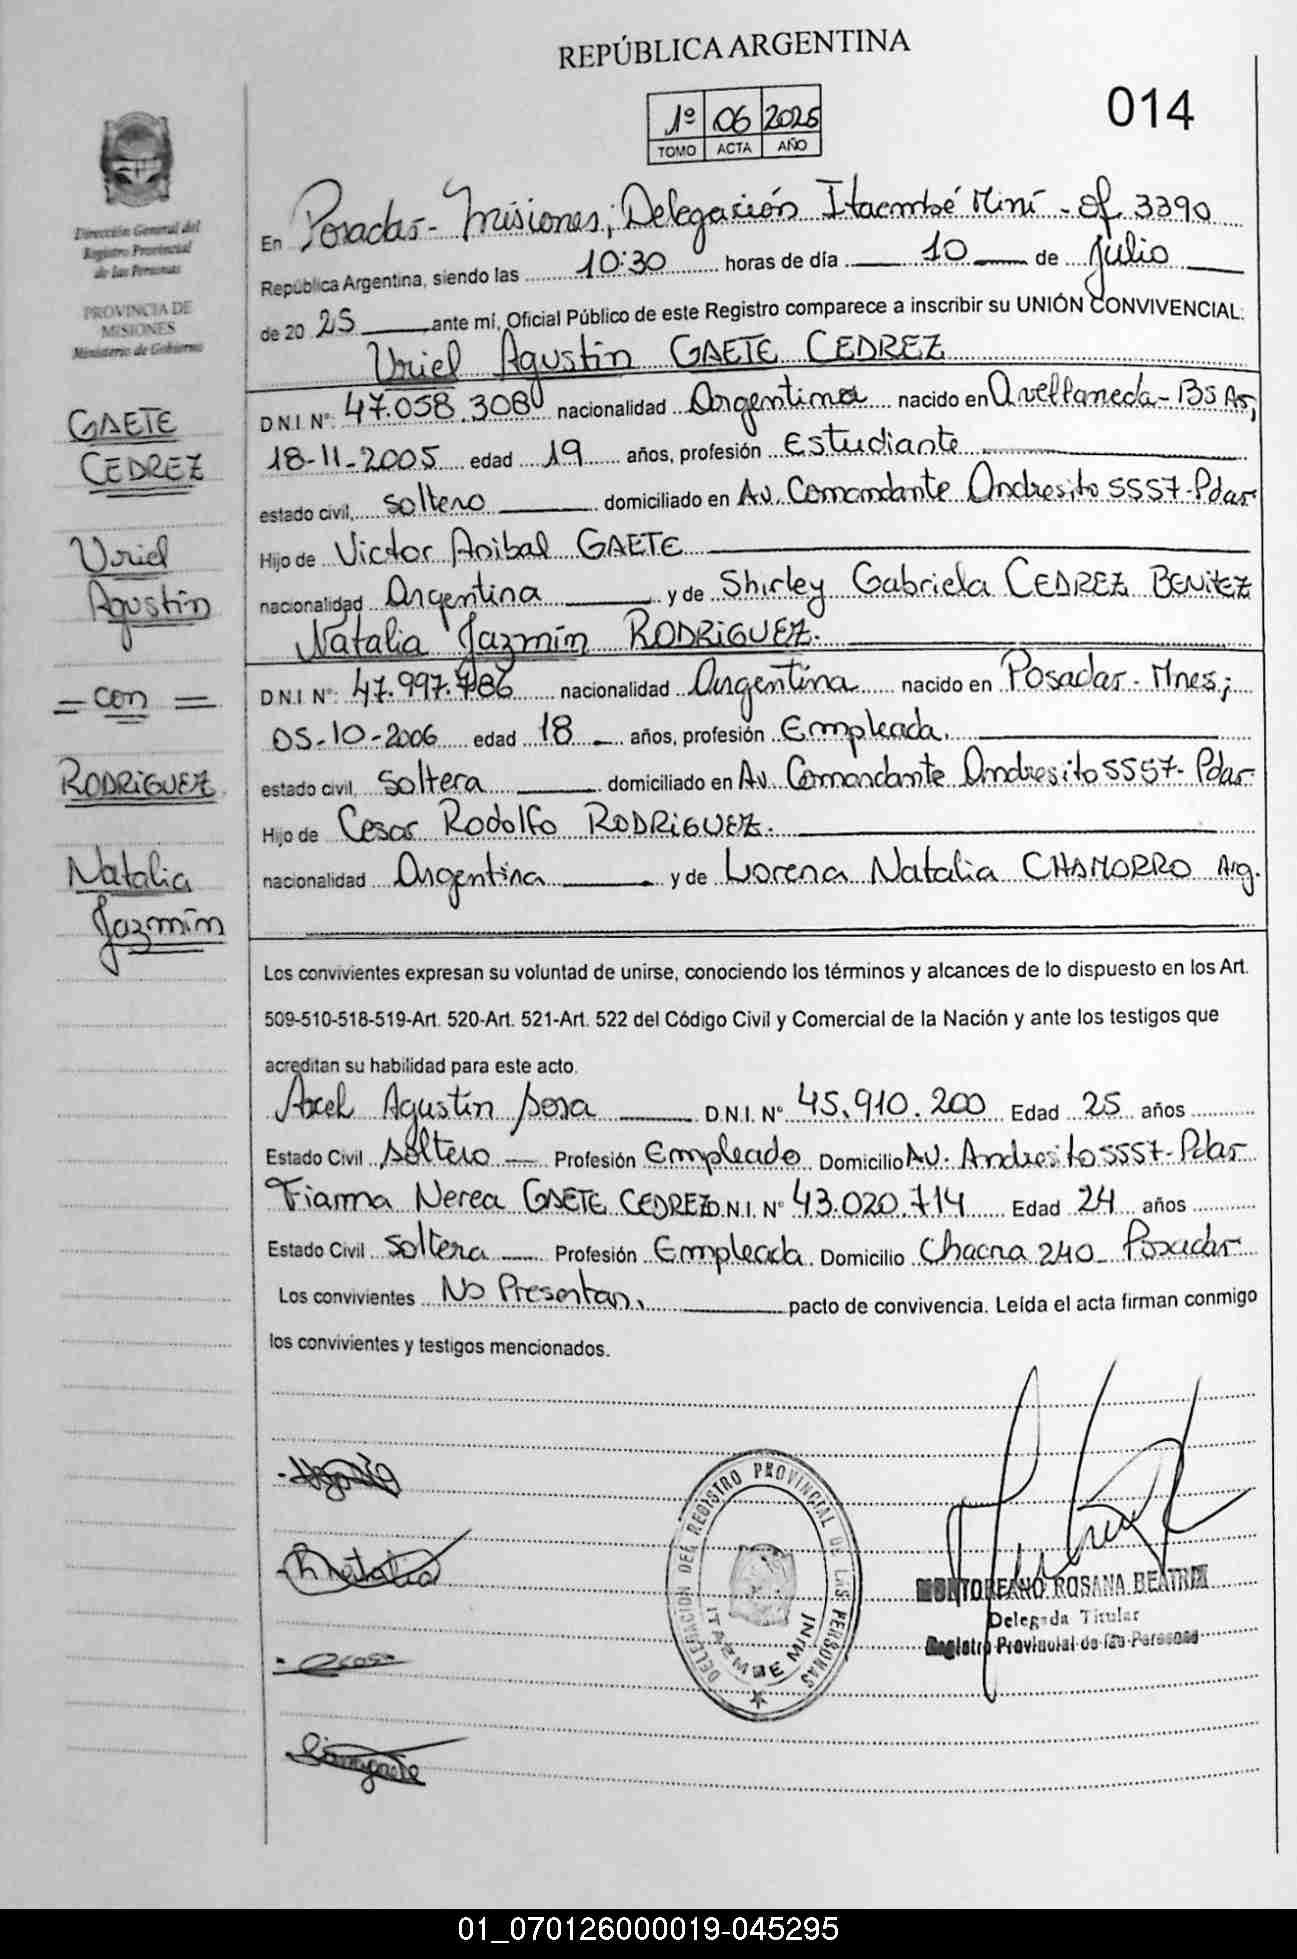 REPÚBLICA ARGENTINA
014
1º 06 2025
TOMO ACTA AÑO
Dirección General del
Registro Provincial
de las Personas
PROVINCIA DE
MISIONES
Ministerio de Gobierno
GAETE
CEDREZ
Uriel
Agustín
= con =
RODRIGUEZ
Natalia
Jazmín
En Posadas - Misiones; Delegación Itaembé Miní - of 3390
República Argentina, siendo las 10:30 horas de día 10 de julio
de 20 25 ante mí, Oficial Público de este Registro comparece a inscribir su UNIÓN CONVIVENCIAL:
Uriel Agustín GAETE CEDREZ
D.N.I. Nº: 47.058.308 nacionalidad Argentina nacido en Avellaneda - Bs As,
18-11-2005 edad 19 años, profesión Estudiante
estado civil, soltero domiciliado en Av. Comandante Andresito 5557-Pdas
Hijo de Victor Anibal GAETE
nacionalidad Argentina y de Shirley Gabriela CEDREZ BENITEZ
Natalia Jazmín RODRIGUEZ.
D.N.I Nº: 47.997.786 nacionalidad Argentina nacido en Posadas - Mnes;
05-10-2006 edad 18 años, profesión Empleada.
estado civil, soltera domiciliado en Av. Comandante Andresito 5557- Pdas
Hijo de Cesar Rodolfo RODRIGUEZ.
nacionalidad Argentina y de Lorena Natalia CHAMORRO Arg.
Los convivientes expresan su voluntad de unirse, conociendo los términos y alcances de lo dispuesto en los Art.
509-510-518-519-Art. 520-Art. 521-Art. 522 del Código Civil y Comercial de la Nación y ante los testigos que
acreditan su habilidad para este acto.
Axel Agustín Sosa D.N.I. Nº 45.910.200 Edad 25 años
Estado Civil soltero Profesión Empleado Domicilio Av. Andresito 5557-Pdas
Fiama Nerea GAETE CEDREZ D.N.I. Nº 43.020.714 Edad 24 años
Estado Civil soltera Profesión Empleada. Domicilio Chacra 240 - Posadas
Los convivientes No Presentan, pacto de convivencia. Leída el acta firman conmigo
los convivientes y testigos mencionados.
DELEGACION DEL REGISTRO PROVINCIAL DE LAS PERSONAS
ITAEMBE MINI
MONTOREANO ROSANA BEATRIZ
Delegada Titular
Registro Provincial de las Personas
01_070126000019-045295